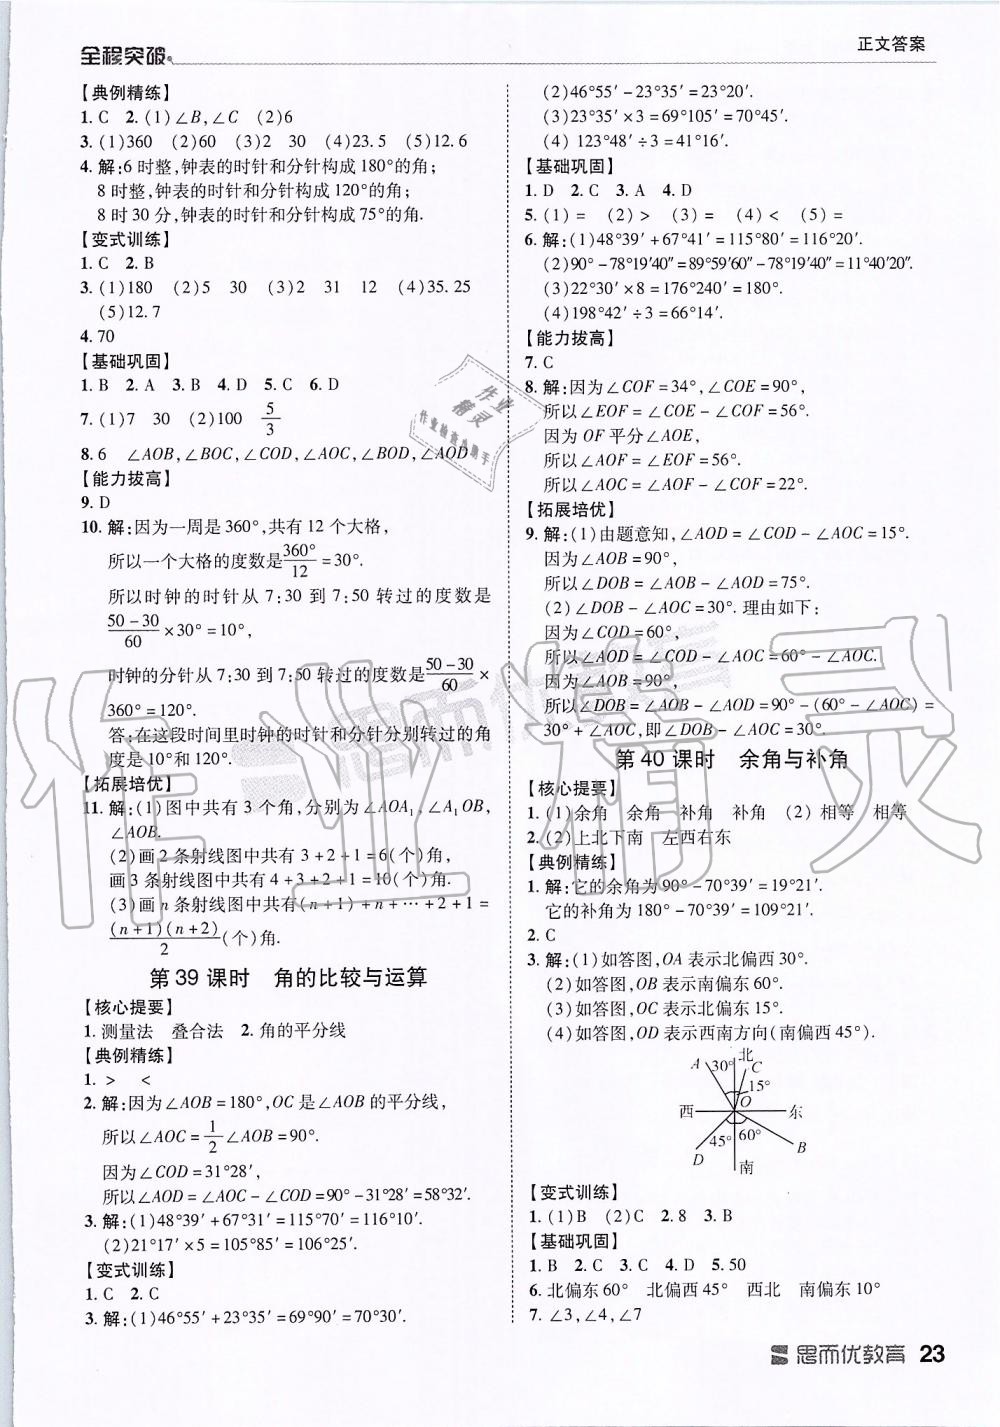 全程突破
正文答案
【典例精练】
1. C 2. (1)∠B,∠C (2)6
3. (1)360 (2)60 (3)2 30 (4)23.5 (5)12.6
4. 解:6时整,钟表的时针和分针构成180°的角;
8时整,钟表的时针和分针构成120°的角;
8时30分,钟表的时针和分针构成75°的角.
【变式训练】
1. C 2. B
3. (1)180 (2)5 30 (3)2 31 12 (4)35.25
(5)12.7
4. 70
【基础巩固】
1. B 2. A 3. B 4. D 5. C 6. D
7. (1)7 30 (2)100 5/3
8. 6 ∠AOB,∠BOC,∠COD,∠AOC,∠BOD,∠AOD
【能力拔高】
9. D
10. 解:因为一周是360°,共有12个大格,
所以一个大格的度数是360°/12=30°.
所以时钟的时针从7:30到7:50转过的度数是
(50-30)/60×30°=10°,
时钟的分针从7:30到7:50转过的度数是(50-30)/60×
360°=120°.
答:在这段时间里时钟的时针和分针分别转过的角
度是10°和120°.
【拓展培优】
11. 解:(1)图中共有3个角,分别为∠AOA₁,∠A₁OB,
∠AOB.
(2)画2条射线图中共有3+2+1=6(个)角,
画3条射线图中共有4+3+2+1=10(个)角.
(3)画n条射线图中共有(n+1)+n+…+2+1=
(n+1)(n+2)/2(个)角.
第39课时 角的比较与运算
【核心提要】
1. 测量法 叠合法 2. 角的平分线
【典例精练】
1. > <
2. 解:因为∠AOB=180°,OC是∠AOB的平分线,
所以∠AOC=1/2∠AOB=90°.
因为∠COD=31°28′,
所以∠AOD=∠AOC-∠COD=90°-31°28′=58°32′.
3. 解:(1)48°39′+67°31′=115°70′=116°10′.
(2)21°17′×5=105°85′=106°25′.
【变式训练】
1. C 2. C
3. 解:(1)46°55′+23°35′=69°90′=70°30′.
(2)46°55′-23°35′=23°20′.
(3)23°35′×3=69°105′=70°45′.
(4) 123°48′÷3=41°16′.
【基础巩固】
1. D 2. C 3. A 4. D
5. (1)= (2)> (3)= (4)< (5)=
6. 解:(1)48°39′+67°41′=115°80′=116°20′.
(2)90°-78°19′40″=89°59′60″-78°19′40″=11°40′20″.
(3)22°30′×8=176°240′=180°.
(4)198°42′÷3=66°14′.
【能力拔高】
7. C
8. 解:因为∠COF=34°,∠COE=90°,
所以∠EOF=∠COE-∠COF=56°.
因为OF平分∠AOE,
所以∠AOF=∠EOF=56°.
所以∠AOC=∠AOF-∠COF=22°.
【拓展培优】
9. 解:(1)由题意知,∠AOD=∠COD-∠AOC=15°.
因为∠AOB=90°,
所以∠DOB=∠AOB-∠AOD=75°.
(2)∠DOB-∠AOC=30°.理由如下:
因为∠COD=60°,
所以∠AOD=∠COD-∠AOC=60°-∠AOC.
因为∠AOB=90°,
所以∠DOB=∠AOB-∠AOD=90°-(60°-∠AOC)=
30°+∠AOC,即∠DOB-∠AOC=30°.
第40课时 余角与补角
【核心提要】
1. (1)余角 余角 补角 补角 (2) 相等 相等
2. (2)上北下南 左西右东
【典例精练】
1. 解:它的余角为90°-70°39′=19°21′.
它的补角为180°-70°39′=109°21′.
2. C
3. 解:(1)如答图,OA表示北偏西30°.
(2)如答图,OB表示南偏东60°.
(3)如答图,OC表示北偏东15°.
(4)如答图,OD表示西南方向(南偏西45°).
北
A 30° C
15°
西 O 东
45° 60°
D B
南
【变式训练】
1. (1)B (2)C 2. 8 3. B
【基础巩固】
1. B 2. C 3. C 4. D 5. 50
6. 北偏东60° 北偏西45° 西北 南偏东10°
7. ∠3,∠4,∠7
思而优教育 23
作业精灵
作业检查小助手
作业精灵
思而优教育